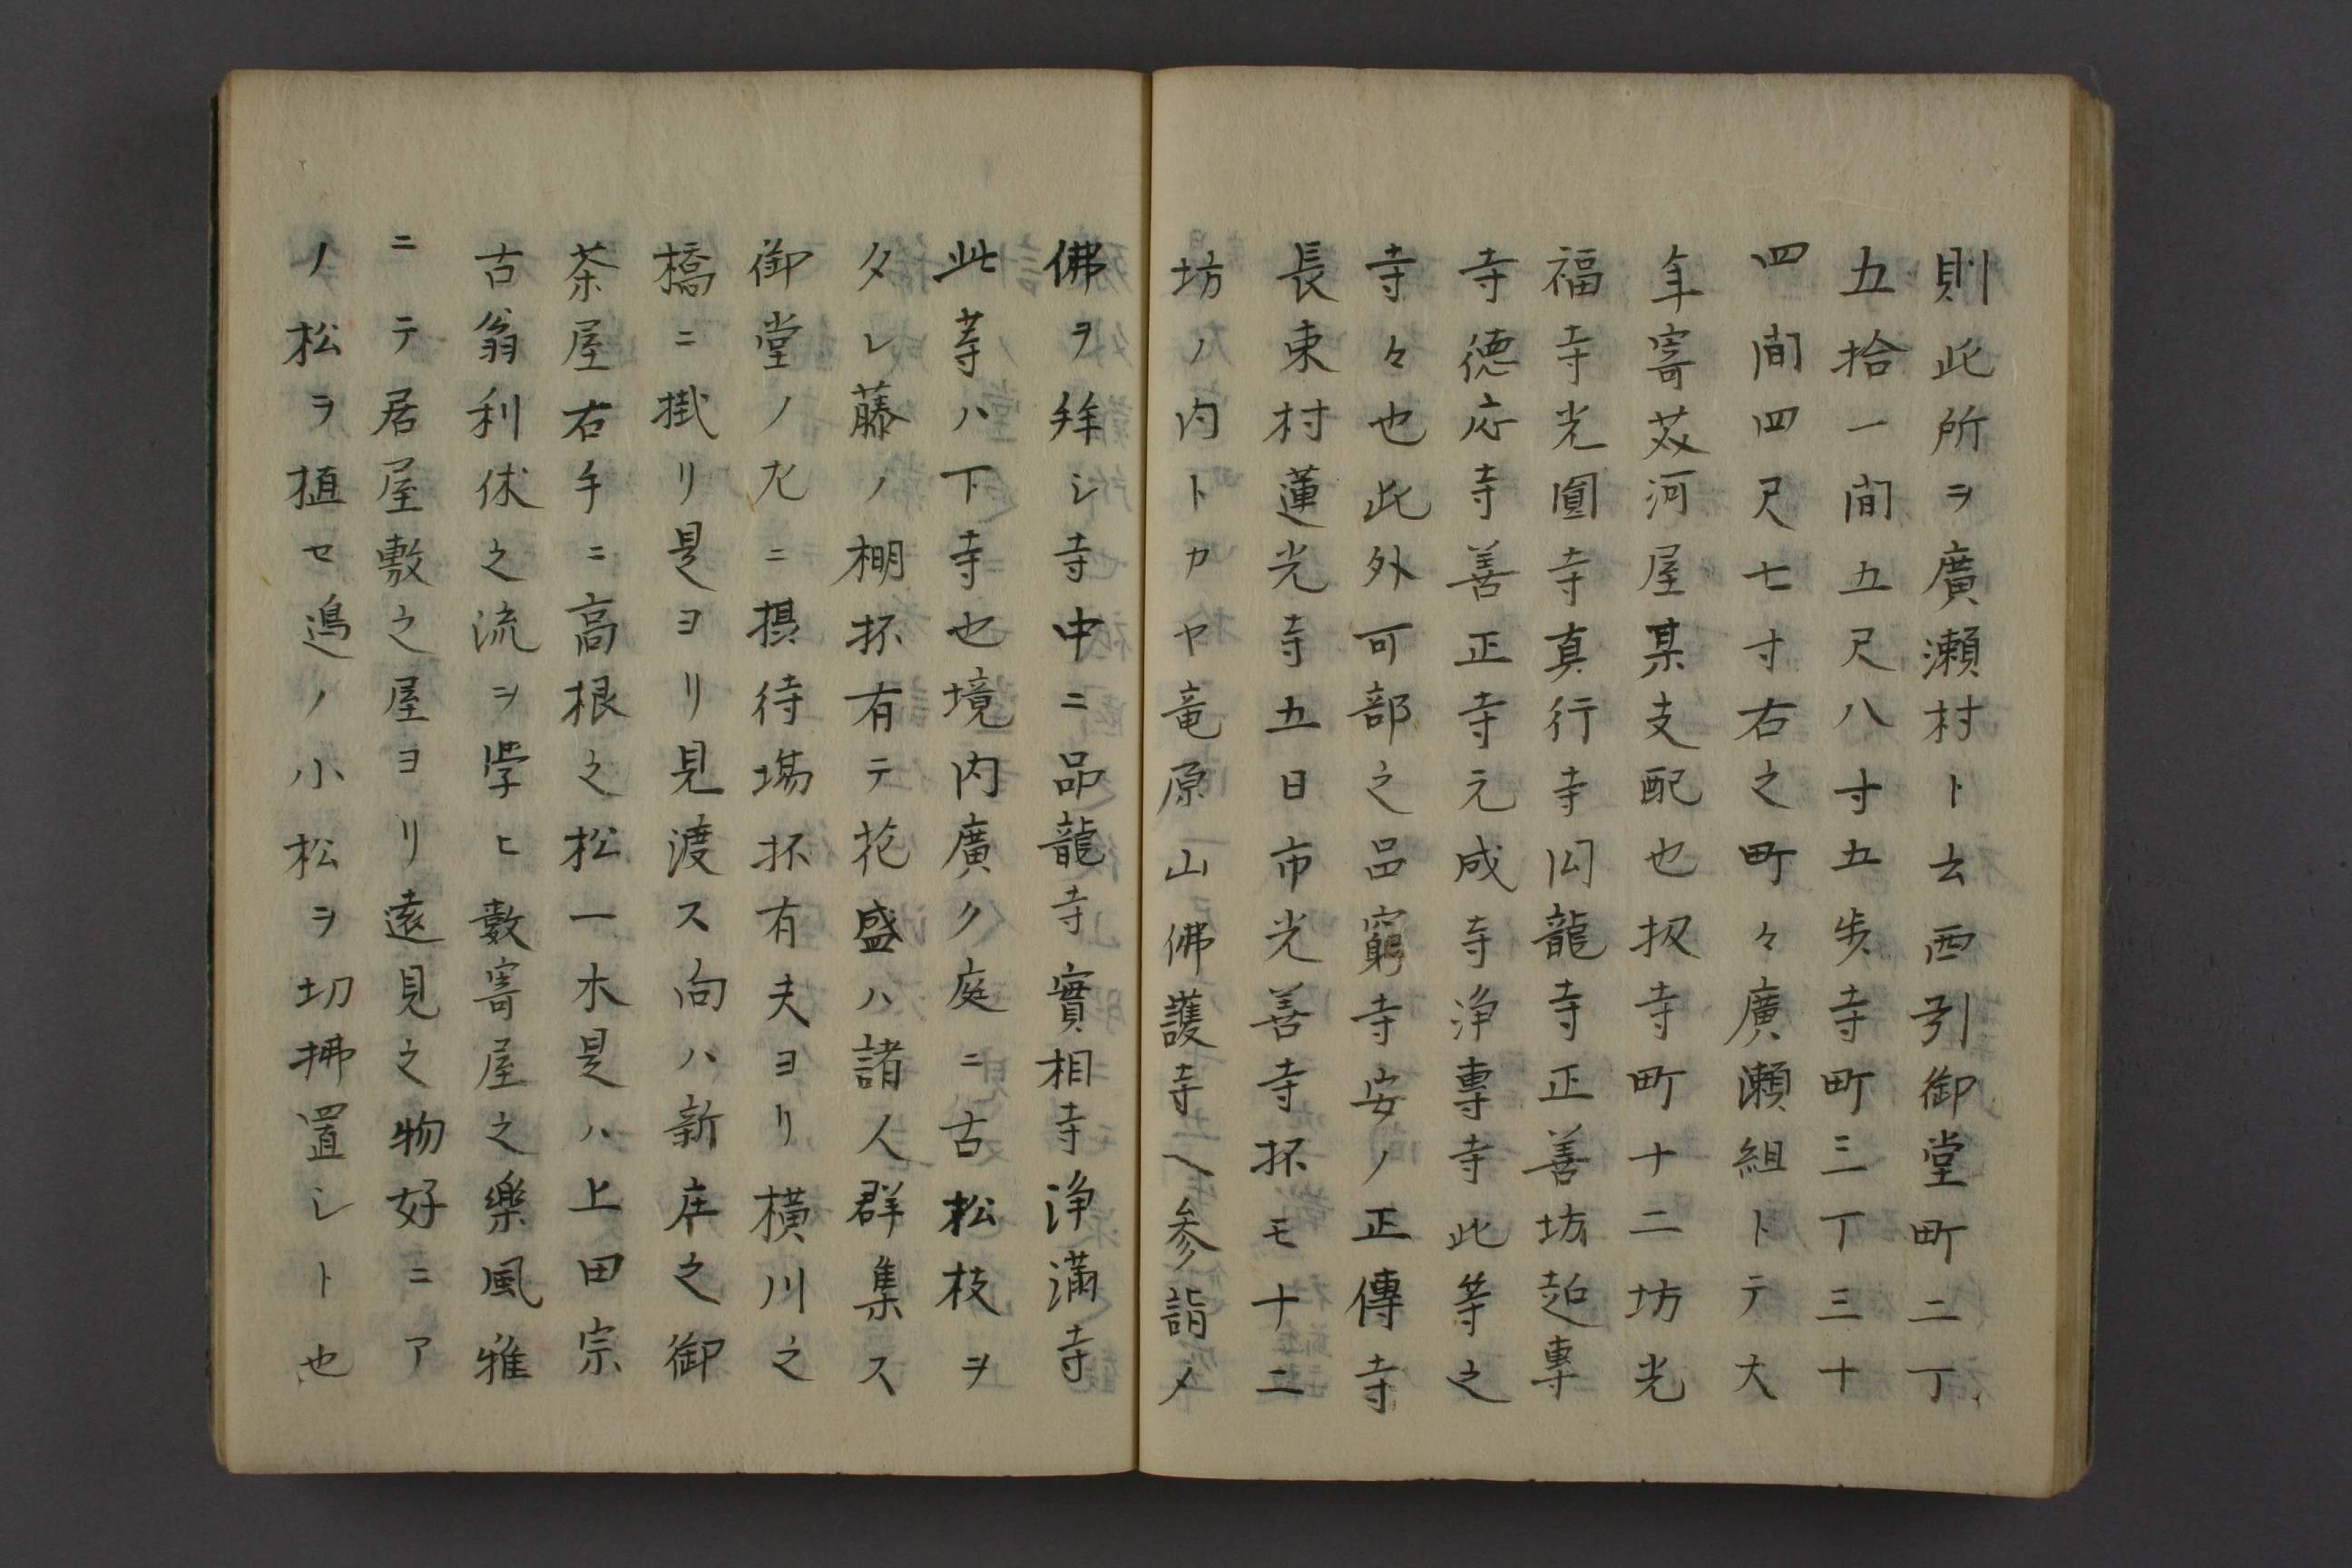 則此所ヲ廣瀬村ト云西引御堂町二丁
五拾一間五尺八寸五歩寺町三丁三十
四間四尺七寸右之町々廣瀬組トテ大
年寄苅河屋某支配也扨寺町十二坊光
福寺光圓寺真行寺円龍寺正善坊超專
寺徳応寺善正寺元成寺浄專寺此等之
寺々也此外可部之品窮寺安ノ正傳寺
長束村蓮光寺五日市光善寺抔モ十二
坊ノ内トカヤ竜原山佛護寺ヘ参詣メ
佛ヲ拜シ寺中ニ品龍寺實相寺浄滿寺
此等ハ下寺也境内廣ク庭ニ古松枝ヲ
タレ藤ノ棚抔有テ花盛ハ諸人群集ス
御堂ノ左ニ摂待場抔有夫ヨリ横川之
橋ニ掛リ是ヨリ見渡ス向ハ新庄之御
茶屋右手ニ高根之松一木是ハ上田宗
古翁利休之流ヲ学ヒ數寄屋之樂風雅
ニテ居屋敷之屋ヨリ遠見之物好ニア
ノ松ヲ植セ邉ノ小松ヲ切拂置シト也